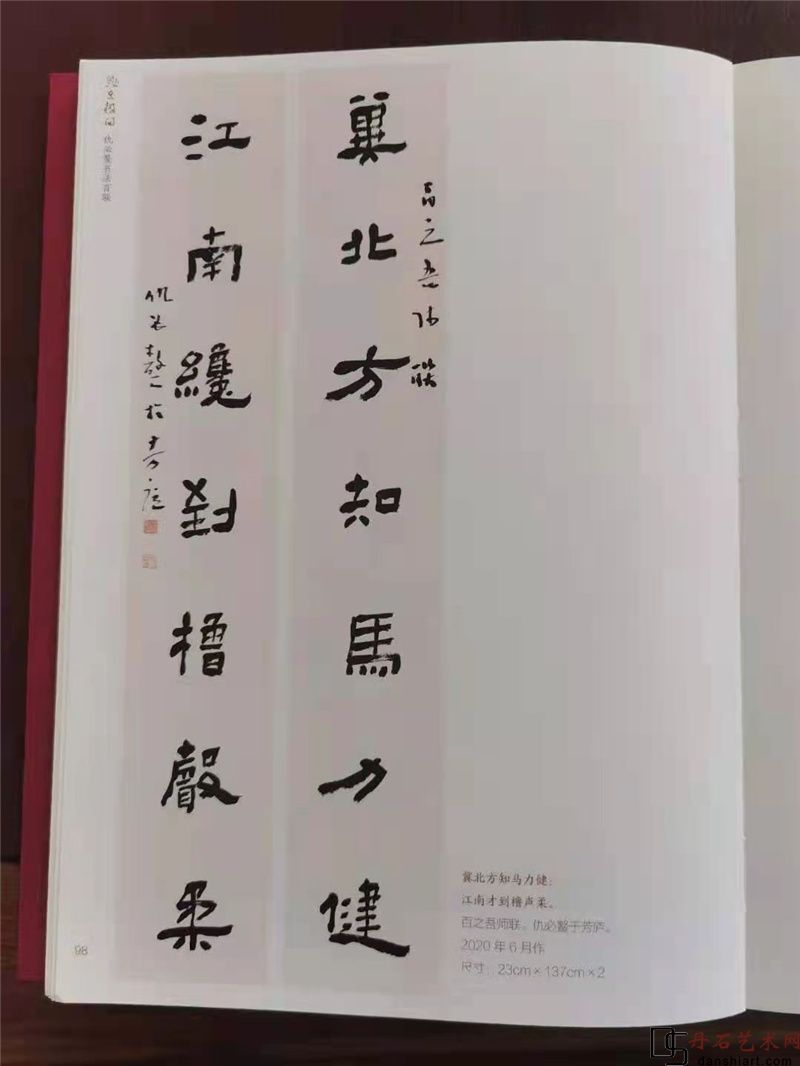 冀北方知馬力健
百之吾师联
江南纔到櫓聲柔
仇必鷔於芳庐
仇必鷔书法百联
冀北方知马力健；
江南才到橹声柔。
百之吾师联。仇必鷔于芳庐。
2020年6月作
尺寸：23cm×137cm×2
98
丹石艺术网
danshiart.com